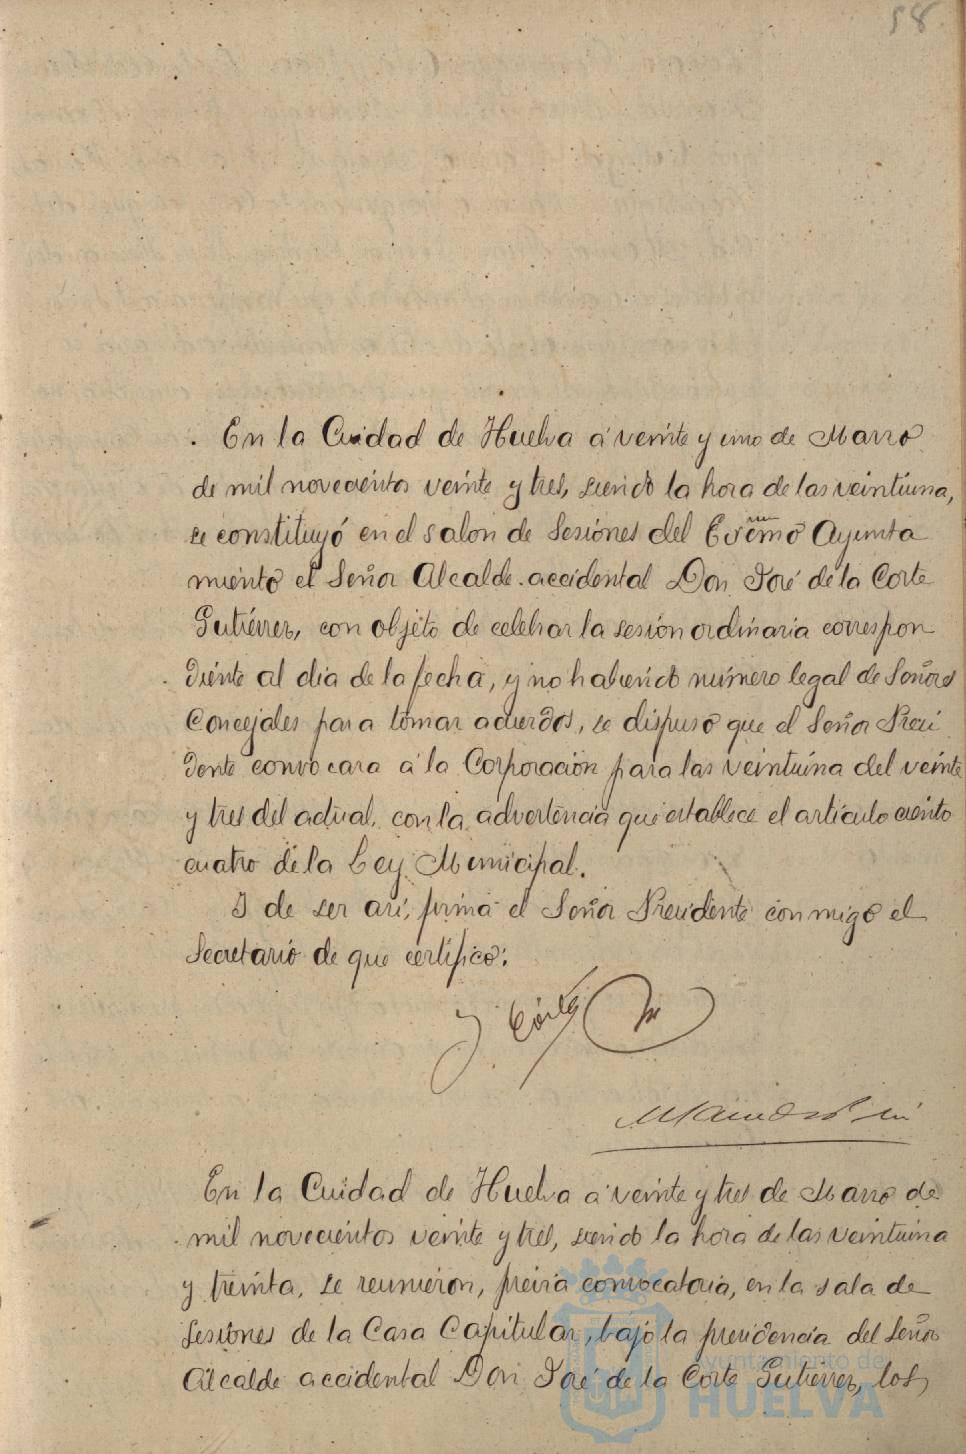 58
En la Cuidad de Huelva á veinte y uno de Marzo
de mil novecientos veinte y tres, siendo la hora de las veintiuna,
se constituyó en el salon de Sesiones del Excmo Ayunta
miento el Señor Alcalde accidental Don José de la Corte
Gutiérrez, con objeto de celebrar la sesión ordinaria correspon
diente al dia de la fecha, y no habiendo número legal de Señores
Concejales para tomar acuerdos, se dispuso que el Señor Presi
dente convocara á la Corporación para las veintiuna del veinte
y tres del actual, con la advertencia que establece el artículo ciento
cuatro de la Ley Municipal.
Y de ser asi, firma el Señor Presidente conmigo el
Secretario de que certifico:
J. Corte
En la Cuidad de Huelva á veinte y tres de Marzo de
mil novecientos veinte y tres, siendo la hora de las veintiuna
y treinta, se reunieron, previa convocatoria, en la sala de
Sesiones de la Casa Capitular, bajo la presidencia del Señor
Alcalde accidental Don José de la Corte Gutiérrez, los
Ayuntamiento de
HUELVA